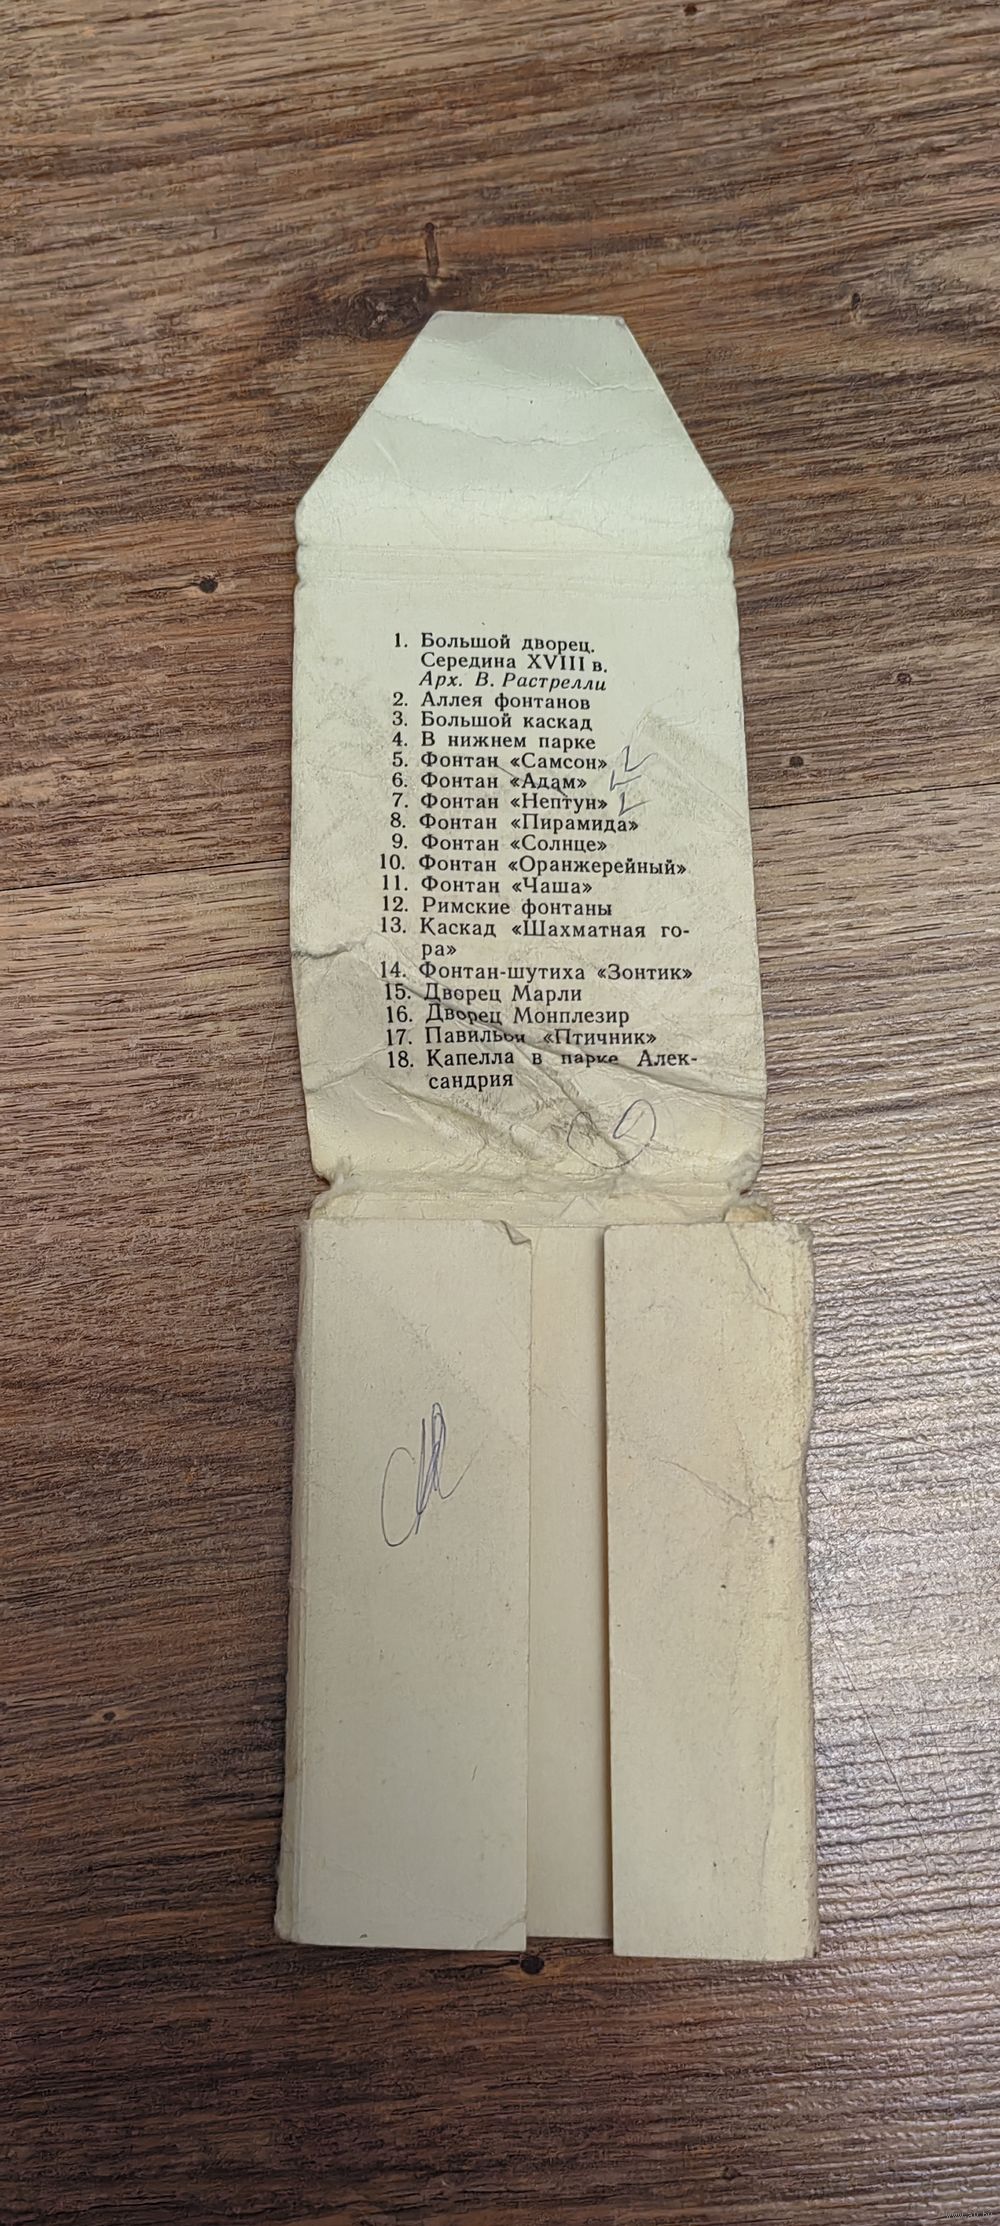 1. Большой дворец.
Середина XVIII в.
Арх. В. Растрелли
2. Аллея фонтанов
3. Большой каскад
4. В нижнем парке
5. Фонтан «Самсон»
6. Фонтан «Адам»
7. Фонтан «Нептун»
8. Фонтан «Пирамида»
9. Фонтан «Солнце»
10. Фонтан «Оранжерейный»
11. Фонтан «Чаша»
12. Римские фонтаны
13. Каскад «Шахматная го-
ра»
14. Фонтан-шутиха «Зонтик»
15. Дворец Марли
16. Дворец Монплезир
17. Павильон «Птичник»
18. Капелла в парке Алек-
сандрия